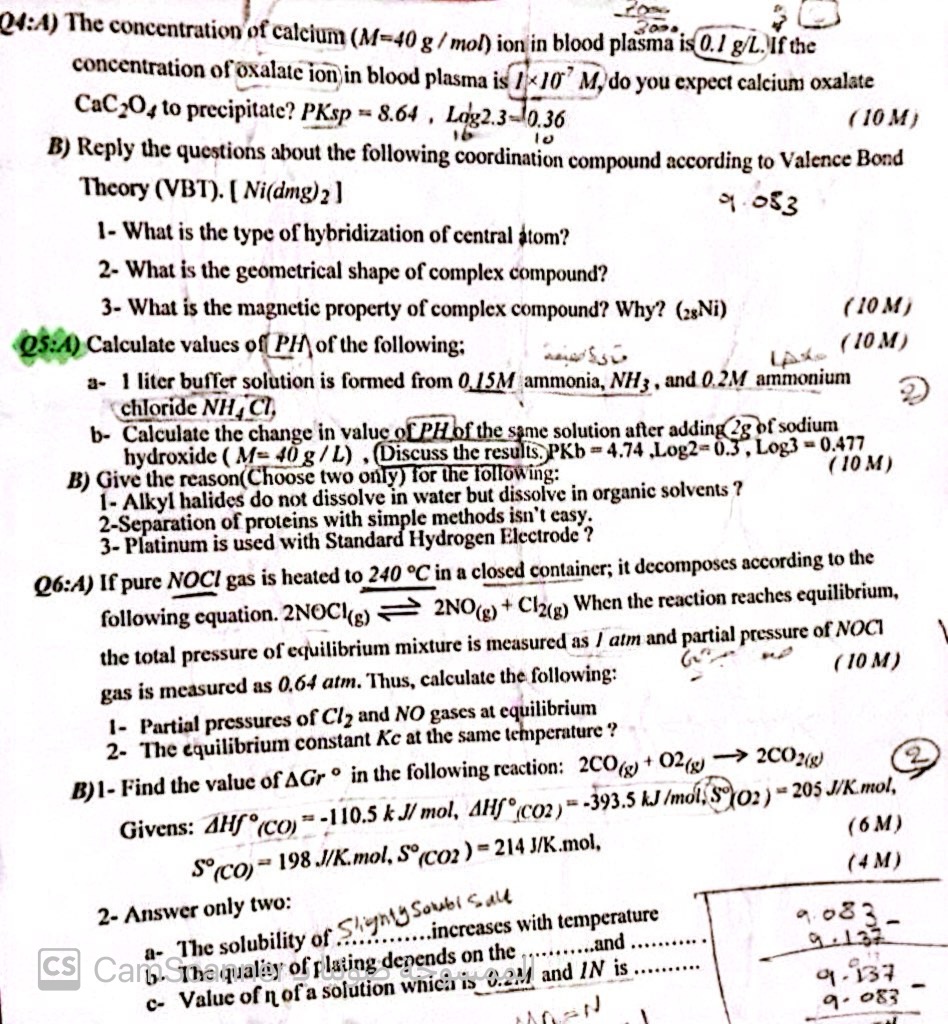 2000
3000
Q4:A) The concentration of calcium (M=40 g / mol) ion in blood plasma is 0.1 g/L. If the
concentration of oxalate ion in blood plasma is 1×10⁻⁷ M, do you expect calcium oxalate
CaC₂O₄ to precipitate? PKsp = 8.64 , Log2.3=0.36 (10 M)
10 10
B) Reply the questions about the following coordination compound according to Valence Bond
Theory (VBT). [ Ni(dmg)₂ ]
9.083
1- What is the type of hybridization of central atom?
2- What is the geometrical shape of complex compound?
3- What is the magnetic property of complex compound? Why? (₂₈Ni) (10 M)
Q5:A) Calculate values of PH of the following; (10 M)
a- 1 liter buffer solution is formed from 0.15M ammonia, NH₃ , and 0.2M ammonium
chloride NH₄ Cl,
2
b- Calculate the change in value of PH of the same solution after adding 2g of sodium
hydroxide ( M= 40 g / L) , (Discuss the results. PKb = 4.74 ,Log2= 0.3 , Log3 = 0.477
B) Give the reason(Choose two only) for the following: (10 M)
1- Alkyl halides do not dissolve in water but dissolve in organic solvents ?
2-Separation of proteins with simple methods isn't easy.
3- Platinum is used with Standard Hydrogen Electrode ?
Q6:A) If pure NOCl gas is heated to 240 °C in a closed container; it decomposes according to the
following equation. 2NOCl(g) ⇌ 2NO(g) + Cl₂(g) When the reaction reaches equilibrium,
the total pressure of equilibrium mixture is measured as 1 atm and partial pressure of NOCl
gas is measured as 0.64 atm. Thus, calculate the following: (10 M)
1- Partial pressures of Cl₂ and NO gases at equilibrium
2- The equilibrium constant Kc at the same temperature ?
2
B)1- Find the value of ΔGr ° in the following reaction: 2CO(g) + O2(g) ⟶ 2CO₂(g)
Givens: ΔHf°(CO) = -110.5 k J/ mol, ΔHf°(CO2) = -393.5 kJ /mol, S°(O2) = 205 J/K.mol,
S°(CO) = 198 J/K.mol, S°(CO2) = 214 J/K.mol, (6 M)
2- Answer only two: (4 M)
a- The solubility of ............increases with temperature
Slighty Solubl Salt
b- The quality of plating depends on the ............and ..........
c- Value of η of a solution which is 0.2M and 1N is ..........
M n = N
9.083 -
9.137
9.137 -
9.083
CS CamScanner